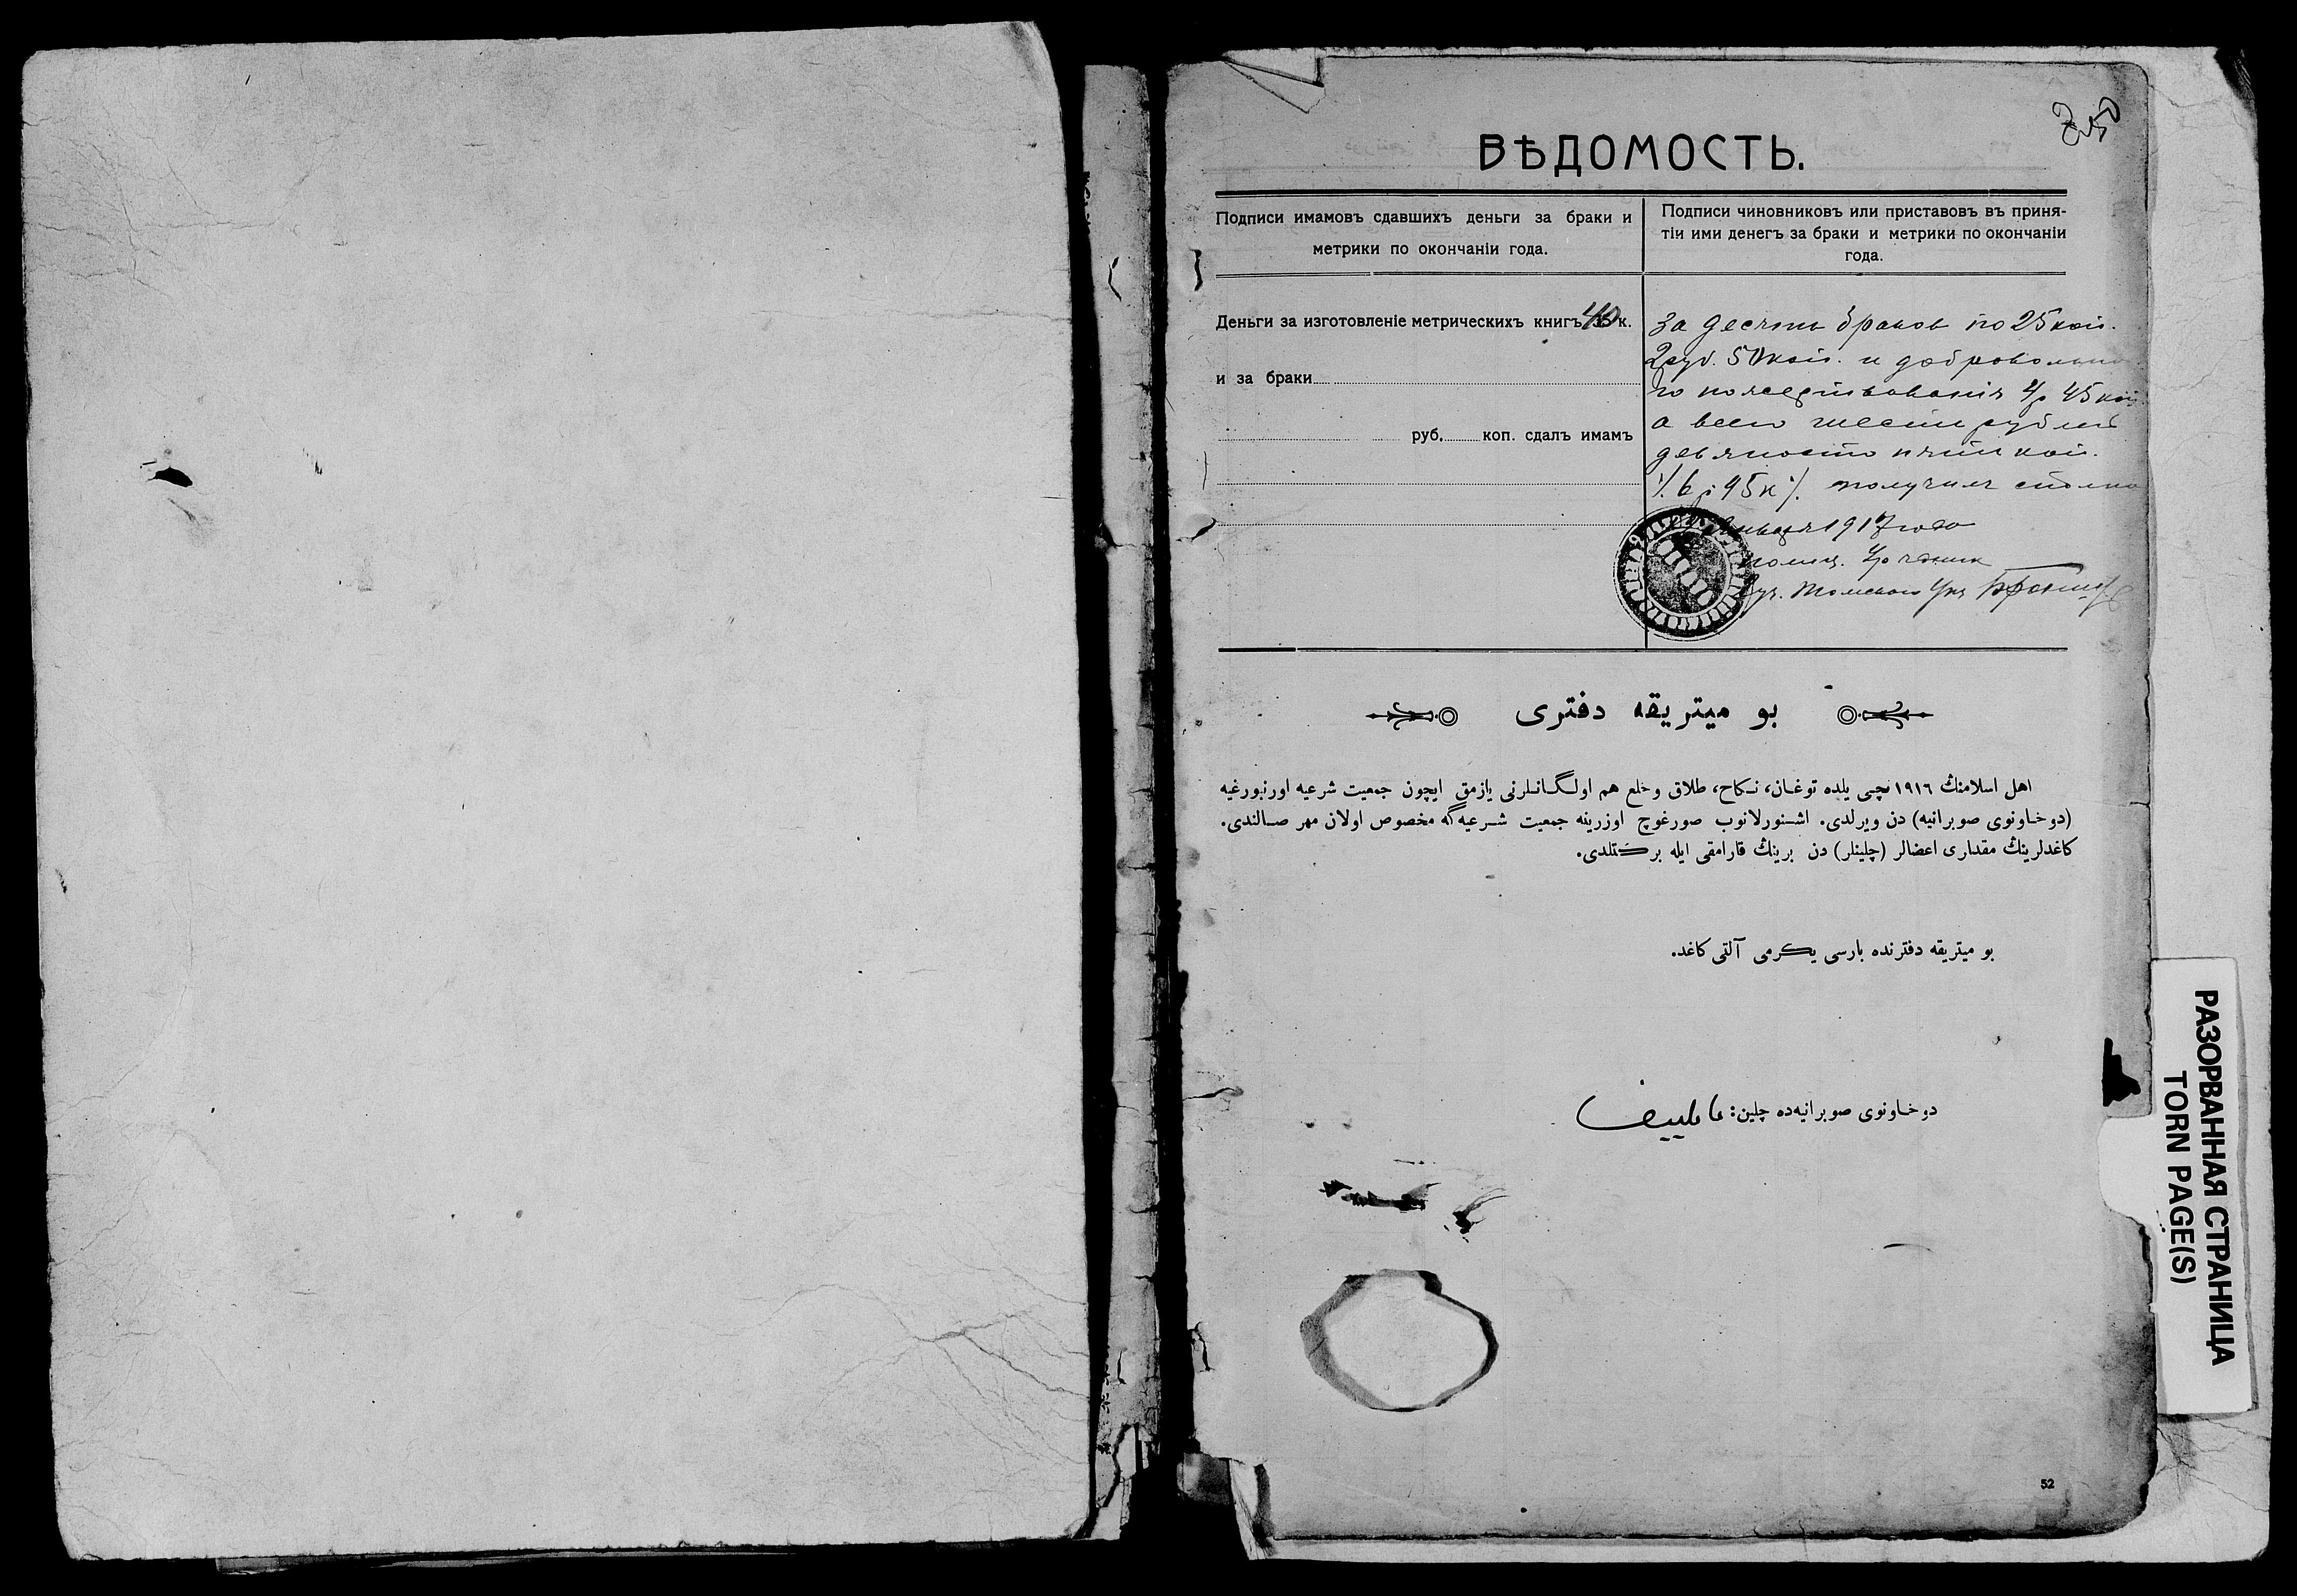 ВѢДОМОСТЬ.
Подписи имамовъ сдавшихъ деньги за браки и
метрики по окончаніи года.
Подписи чиновниковъ или приставовъ въ приня-
тіи ими денегъ за браки и метрики по окончаніи
года.
Деньги за изготовленіе метрическихъ книгъ 40 к.
и за браки
руб. коп. сдалъ имамъ
За десять браков по 25 коп.
2 руб. 50 коп. и добровольна
го пожертвованія 4 р 45 коп
а всего шесть рублей
девяносто пять коп.
6 р 95 к получил
Января 1917 года
полиц.
уч. Томскаго
بو ميتريقه دفترى
اهل اسلامنڭ ١٩١٦ نچى يلده توغان، نكاح، طلاق وخلع هم اولگانلرنى يازمق ايچون جمعيت شرعيه اورنبورغيه
(دوخاونوى صوبرانيه) دن ويرلدى. اشنورلانوب صورغوچ اوزرينه جمعيت شرعيه‌گه مخصوص اولان مهر صالندى.
كاغدلرينڭ مقدارى اعضالر (چلينلر) دن برينڭ قارامقى ايله بركتلدى.
بو ميتريقه دفترنده بارسى يكرمى آلتى كاغد.
دوخاونوى صوبرانيه‌ده چلين:
52
РАЗОРВАННАЯ СТРАНИЦА
TORN PAGE(S)